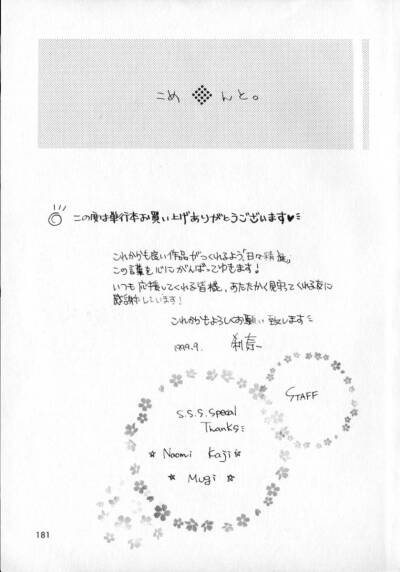 こめんと。
この度は単行本お買い上げありがとうございます♥
これからも良い作品がつくれるよう「日々精進」
この言葉を心にがんばってゆきます!
いつも応援してくれる皆様、あたたかく見守ってくれる友に
感謝しています!
これからもよろしくお願い致します
1999.9.
STAFF
S.S.S. Special
Thanks
☆ Naomi Kaji ☆
☆ Mugi ☆
181